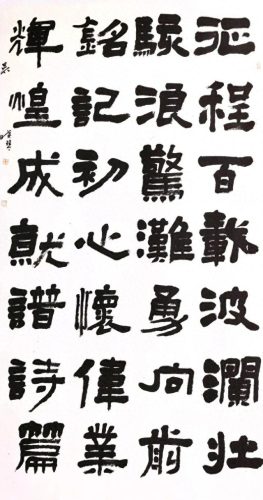 征程百載波瀾壯
駭浪驚灘勇向前
銘記初心懷偉業
輝煌成就譜詩篇